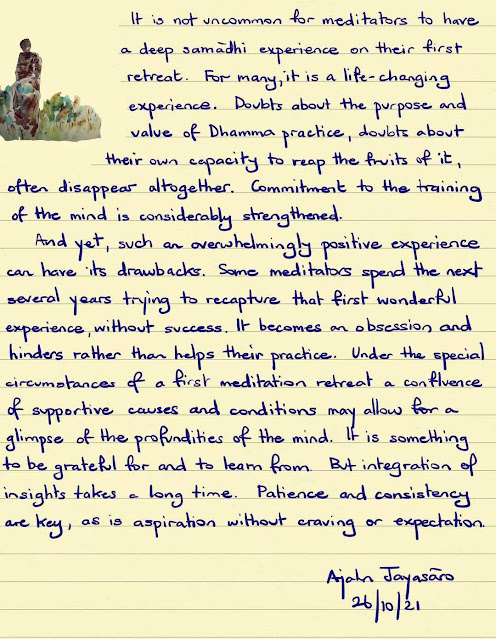 It is not uncommon for meditators to have
a deep samādhi experience on their first
retreat. For many, it is a life-changing
experience. Doubts about the purpose and
value of Dhamma practice, doubts about
their own capacity to reap the fruits of it,
often disappear altogether. Commitment to the training
of the mind is considerably strengthened.
And yet, such an overwhelmingly positive experience
can have its drawbacks. Some meditators spend the next
several years trying to recapture that first wonderful
experience, without success. It becomes an obsession and
hinders rather than helps their practice. Under the special
circumstances of a first meditation retreat a confluence
of supportive causes and conditions may allow for a
glimpse of the profundities of the mind. It is something
to be grateful for and to learn from. But integration of
insights takes a long time. Patience and consistency
are key, as is aspiration without craving or expectation.
Ajahn Jayasāro
26/10/21